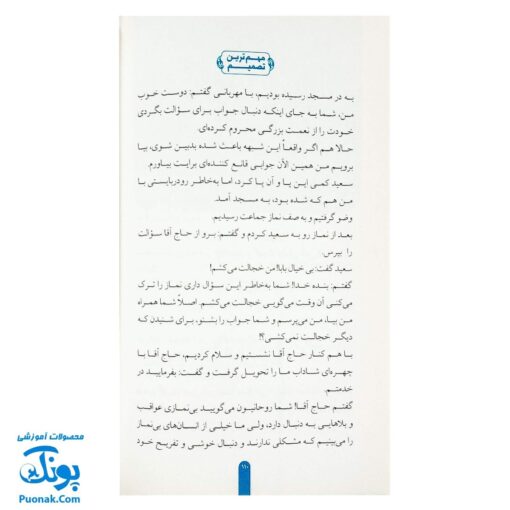 مهم‌ترین
تصمیم
به در مسجد رسیده بودیم، با مهربانی گفتم: دوست خوب
من، شما به جای اینکه دنبال جواب برای سؤالت بگردی
خودت را از نعمت بزرگی محروم کرده‌ای.
حالا هم اگر واقعاً این شبهه باعث شده بدبین شوی، بیا
برویم من همین الآن جوابی قانع کننده‌ای برایت بیاورم.
سعید کمی این پا و آن پا کرد، اما به‌خاطر رودربایستی با
من هم که شده بود، به مسجد آمد.
وضو گرفتیم و به صف نماز جماعت رسیدیم.
بعد از نماز رو به سعید کردم و گفتم: برو از حاج آقا سؤالت
را بپرس.
سعید گفت: بی خیال بابا! من خجالت می‌کشم!
گفتم: بنده خدا! شما به‌خاطر این سؤال داری نماز را ترک
می‌کنی آن وقت می‌گویی خجالت می‌کشم. اصلاً شما همراه
من بیا، من می‌پرسم و شما جواب را بشنو، برای شنیدن که
دیگر خجالت نمی‌کشی؟!
با هم کنار حاج آقا نشستیم و سلام کردیم، حاج آقا با
چهره‌ای شاداب ما را تحویل گرفت و گفت: بفرمایید در
خدمتم.
گفتم حاج آقا! شما روحانیون می‌گویید بی‌نمازی عواقب
و بلاهایی به دنبال دارد، ولی ما خیلی از انسان‌های بی‌نماز
را می‌بینیم که مشکلی ندارند و دنبال خوشی و تفریح خود
۱۱۰
محصولات آموزشی
پونک
Puonak.Com